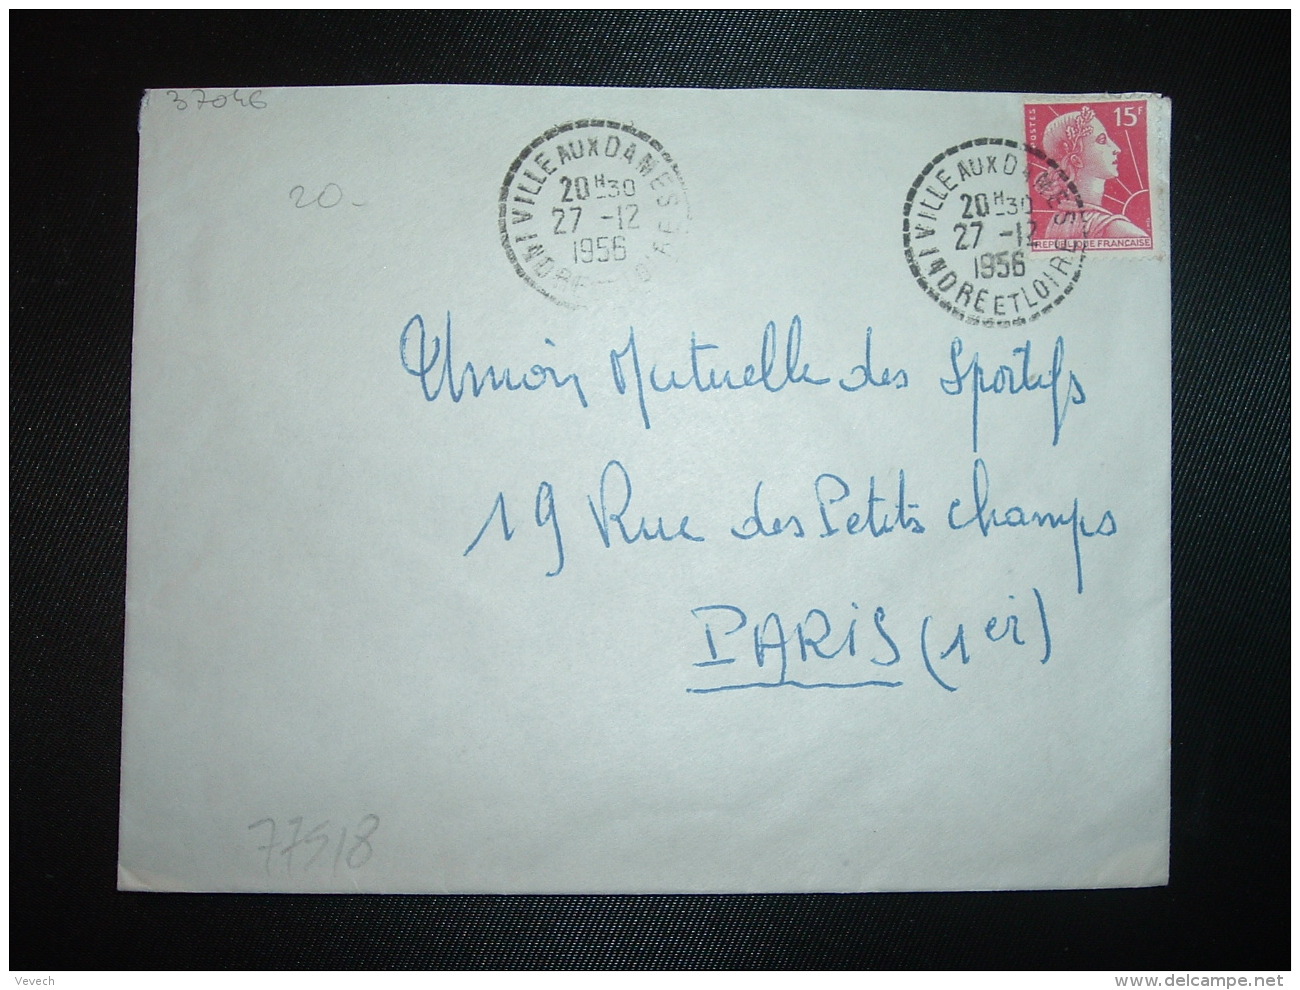 37046
20-
VILLE AUX DAMES
20H30
27 -12
1956
INDRE
VILLE AUX DAMES
20H30
27 -12
1956
INDRE ET LOIRE
15F
POSTES
REPUBLIQUE FRANÇAISE
Union Mutuelle des Sportifs
19 Rue des Petits champs
PARIS (1er)
77518
Vevech
www.delcampe.net